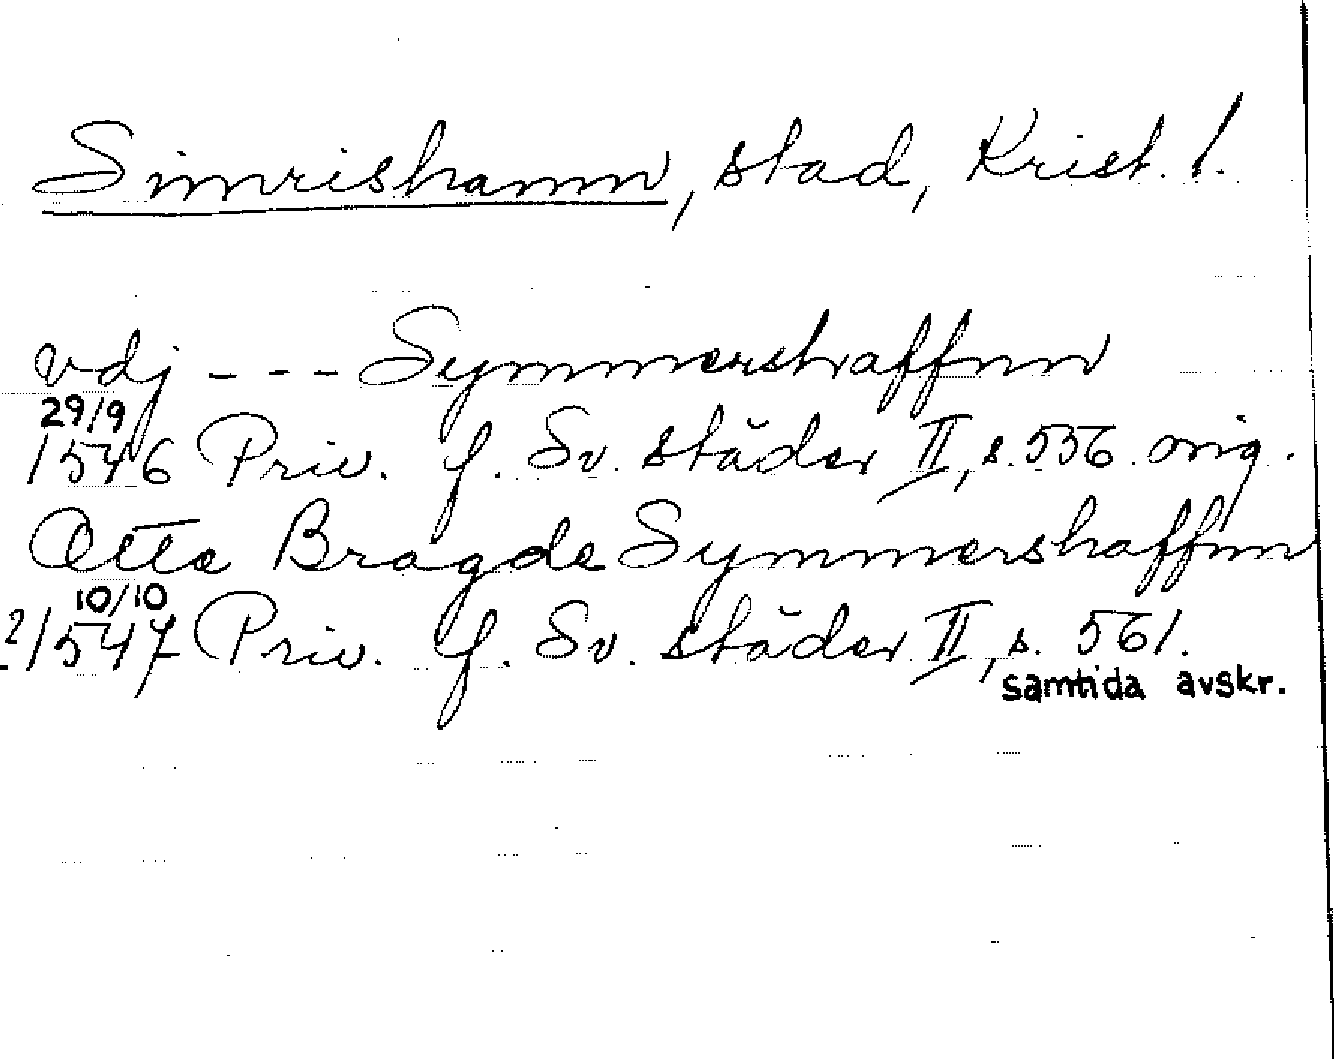 Simrishamn, stad, Krist. l.
vdj --- Symmershaffnn
29/9
1546 Priv. f. Sv. städer II, s. 556. orig.
Otte Bragde Symmershaffnn
10/10
2/1547 Priv. f. Sv. städer II, s. 561.
samtida avskr.